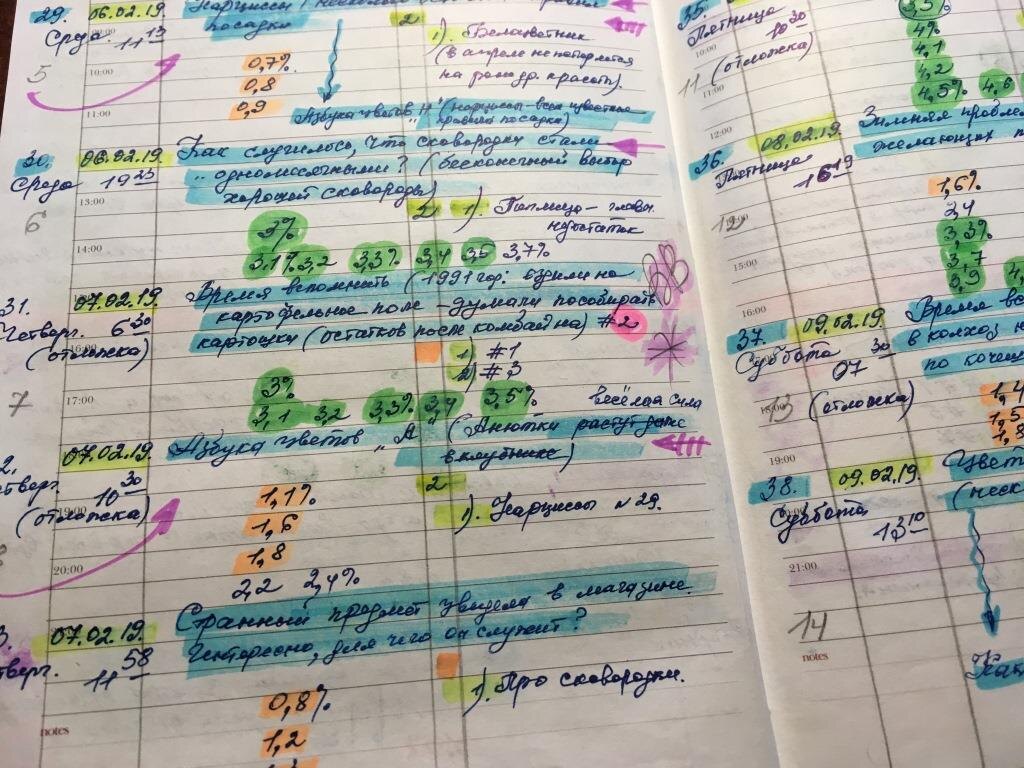 29. 06.02.19.
Среда 11 13
посадки
2
1). Белоцветник
(в апреле не потерялся
5
10:00
0,7%
0,8
0,9
11:00
Азбука цветов „Н" (нарциссы - всем известные
правила посадки)
30. 06.02.19.
Как случилось, что сковородки стали
Среда 19 25
„одноместными"? (бесконечный выбор
хорошей сковороды)
13:00
2 1).
недостаток
6
3%
14:00
3,1% 3,2 3,3% 3,4 3,5 3,7%
31. 07.02.19.
Время вспомнить (1991 год: ездили на
Четверг. 6 30
картофельное поле - думали пособирать
(отложка)
картошки (остатков после комбайна) #2
16:00
1) #1
2) #3
7
17:00
3%
3,1 3,2 3,3% 3,4 3,5% весёлая сила
07.02.19.
Азбука цветов „А" (Анютки растут даже
в клубнике)
2.
тверг. 10 30
(отложка)
19:00
2
1,1%
1). Нарциссы №29.
1,6
1,8
20:00
2,2 2,4%
Странный предмет увидела в магазине.
3. 07.02.19.
Интересно, для чего он служит?
тверг. 11 58
1). Про сковородки.
0,8%
notes
1,2
35.
Пятница 10 30
10:00
(отложка)
11
11:00
3,5
4%
4,1
4,2
4,5% 4,6
12:00
36. 08.02.19.
Зимняя
желающих
Пятница 16 19
12
1,6%
2,4
3,3%
3,7
3,9
15:00
16:00
37. 09.02.19.
Время
Суббота 07 30
в колхоз
по
13
18:00
(отложка)
1,4
1,5
1,8
19:00
38. 09.02.19.
Суббота 13 10
21:00
14
notes